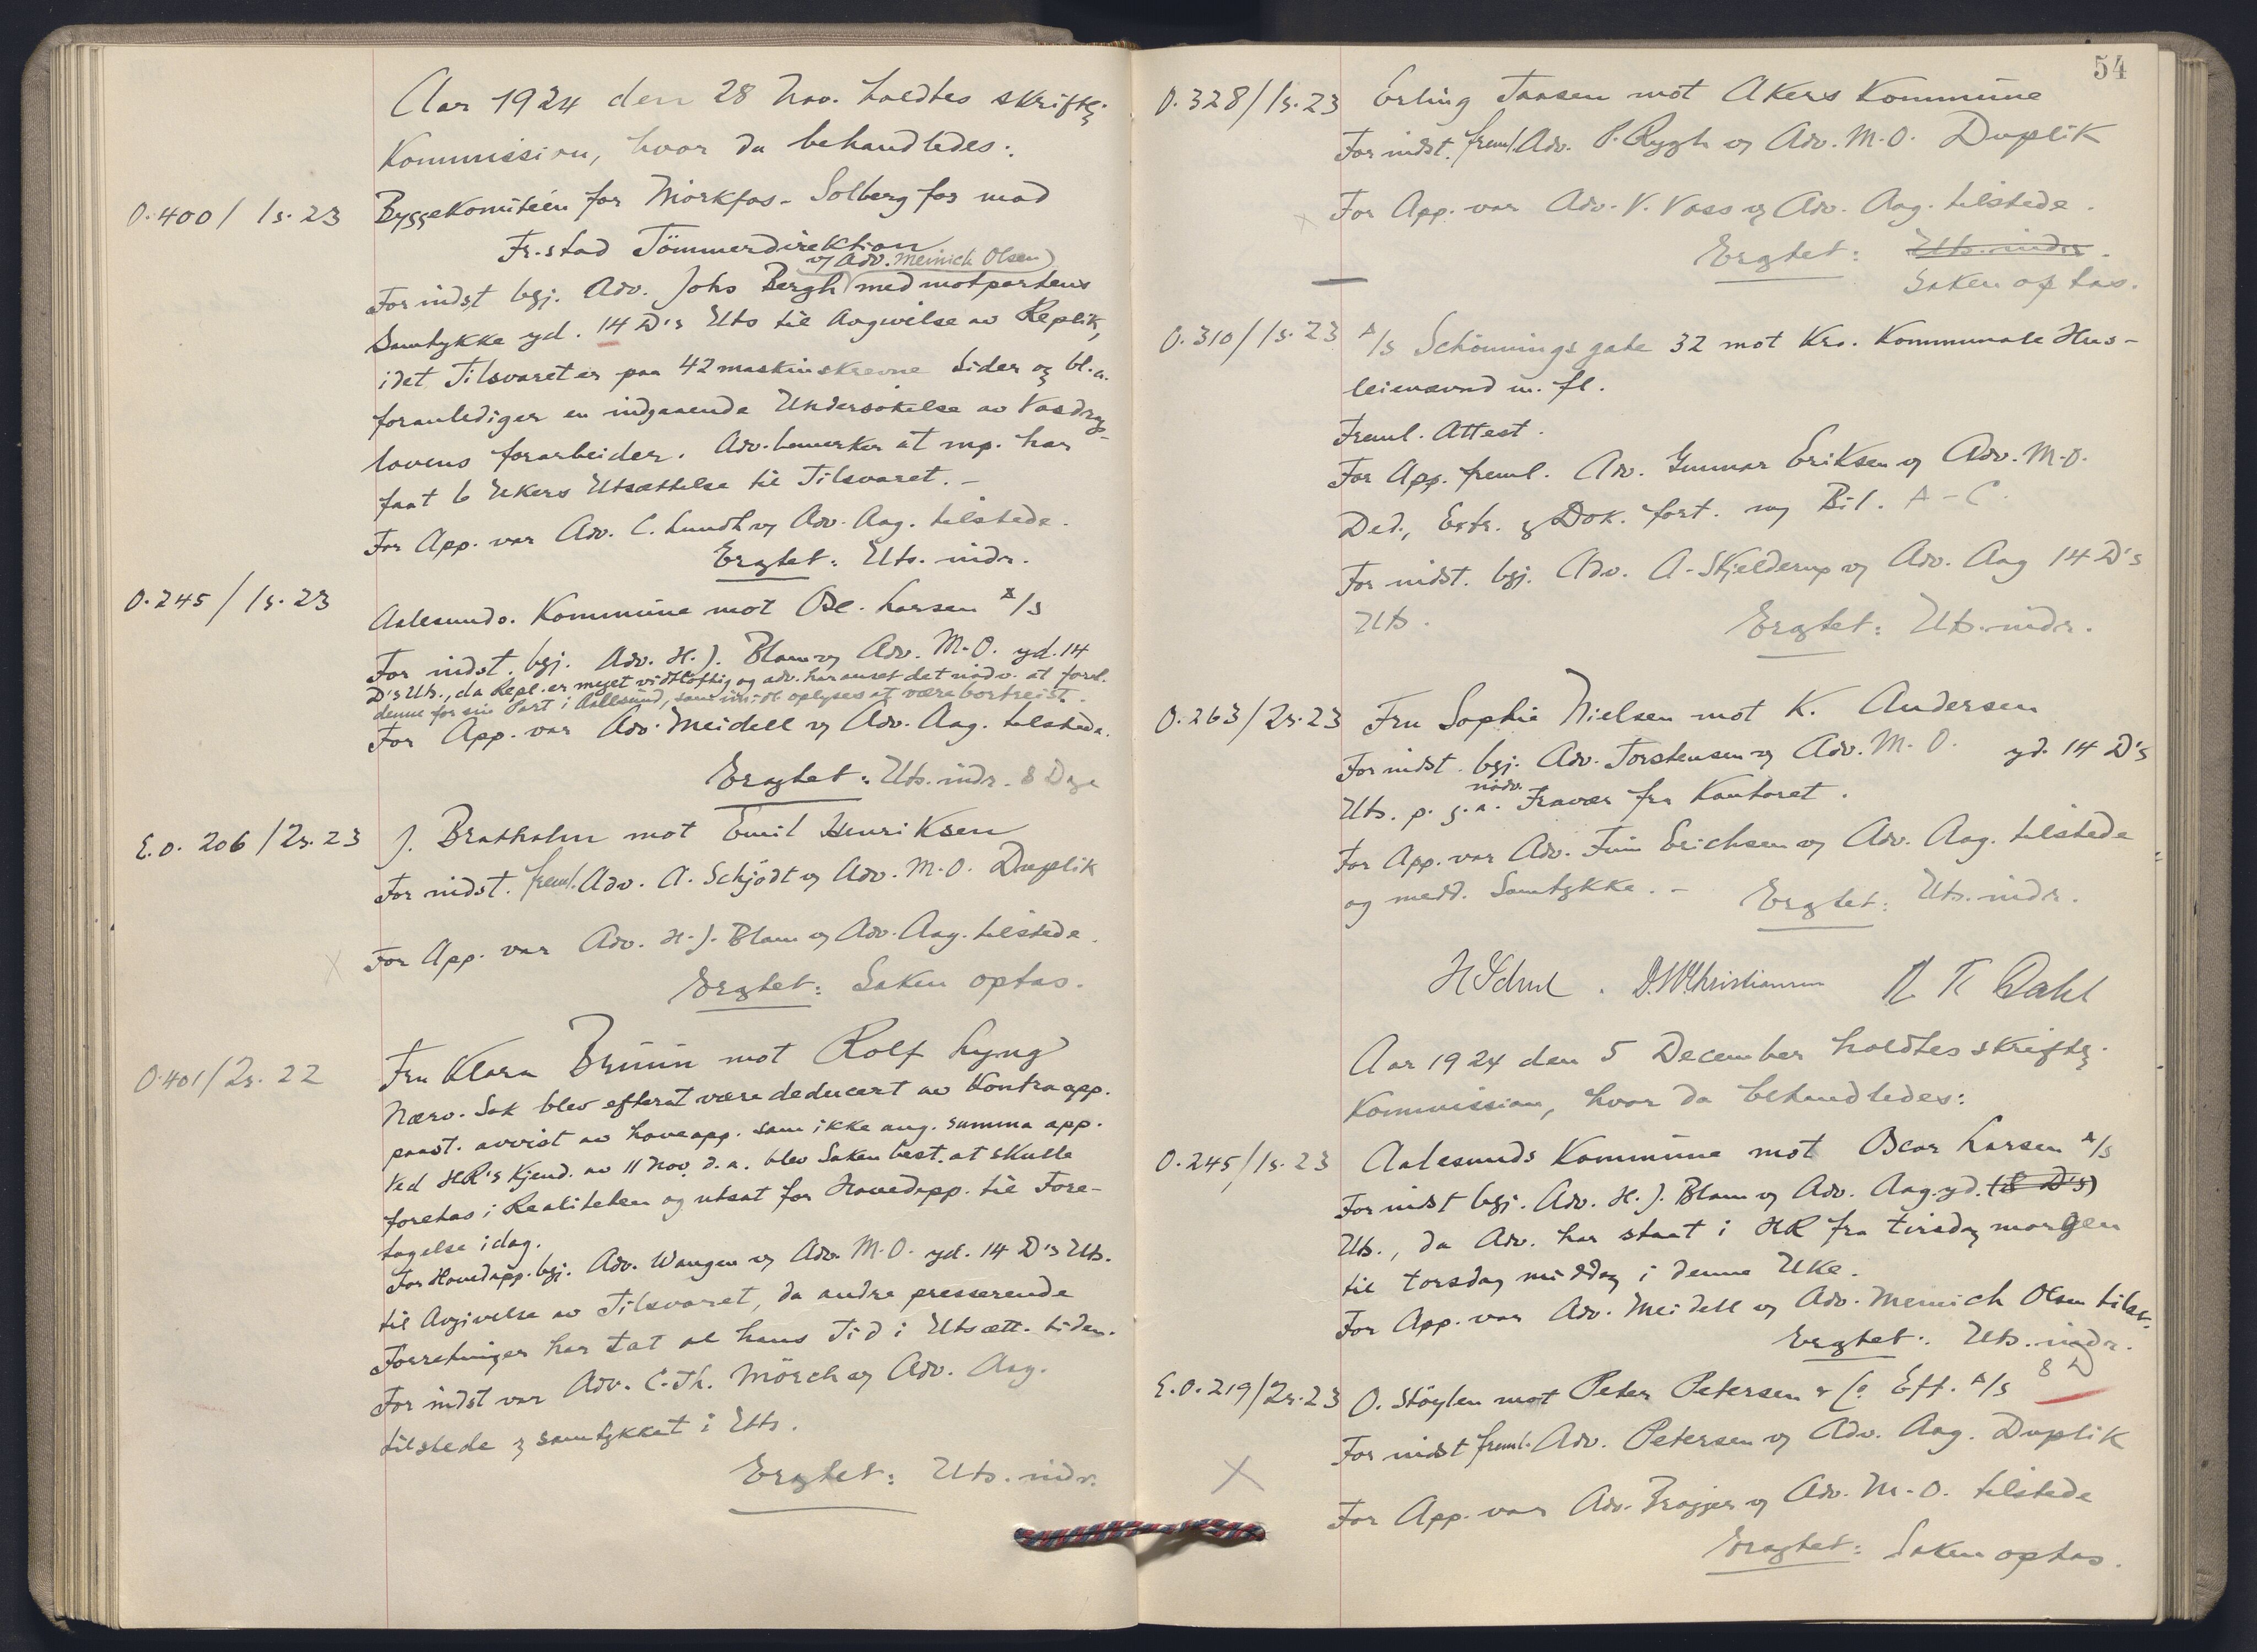 Aar 1924 den 28 Nov. holdtes skriftlig
Kommission, hvor da behandledes:
O. 400 / 1s. 23 Byggekomitéen for Mørkfos-Solbergfos mod
Fr.stad Tömmerdirektion
og Adv. Meinich Olsen)
For indst bgj. Adv. Johs Bergh med motpartens
Samtykke yd. 14 D's Uts til Avgivelse av Replik,
idet Tilsvaret er paa 42 maskinskrevne Sider og bl.a.
foranlediger en indgaaende Undersøkelse av Vasdrag-
lovens forarbeider. Adv. bemerker at mp. har
faat 6 Ukers Utsættelse til Tilsvaret. -
For App. var Adv. C. Lundh og Adv. Aag. tilstede.
Eragtet: Uts. indr.
O. 245 / 1s. 23 Aalesunds. Kommune mot Osc. Larsen A/S
For indst. bgj. Adv. H. J. Blom og Adv. M.O. yd. 14
D's Uts., da Repl. er meget vidtløftig og adv. har anset det nødv. at forel.
denne for sin Part i Aalesund, som oplyses at være bortreist.
For App. var Adv. Meidell og Adv. Aag. tilstede.
Eragtet: Uts. indr. 8 Dage
E.O. 206 / 2s. 23 J. Bratholm mot Emil Henriksen
For indst. freml. Adv. A. Schjödt og Adv. M.O. Duplik
X For App. var Adv. H. J. Blom og Adv. Aag. tilstede.
Eragtet: Saken optas.
O. 401 / 2s. 22 Fru Klara Bruun mot Rolf Lyng
Nærv. Sak blev efterat være deducert av Kontraapp.
paast. avvist av hoveapp. som ikke ang. summa app.
Ved HR's Kjend. av 11 Nov. d. a. blev Saken best. at skulle
foretas i Realiteten og utsat for Hovedapp. til Fore-
tagelse idag.
For Hovedapp. bgj. Adv. Wangen og Adv. M.O. yd. 14 D's Uts.
til Avgivelse av Tilsvaret, da andre presserende
Forretninger har tat al hans Tid i Utsætt. tiden.
For indst var Adv. C. Th. Mörch og Adv. Aag.
tilstede og samtykket i Uts.
Eragtet: Uts. indr.
54
O. 328 / 1s. 23 Erling Taasen mot Akers Kommune
For indst. freml. Adv. P. Rygh og Adv. M.O. Duplik
X For App. var Adv. V. Voss og Adv. Aag. tilstede.
Eragtet: Uts. indr.
Saken optas.
O. 310 / 1s. 23 A/S Schönnings gate 32 mot Kra. Kommunale Hus-
leienævnd m. fl.
Freml. Attest.
For App. freml. Adv. Gunnar Eriksen og Adv. M.O.
Ded., Extr. & Dok. fort. og Bil. A - C.
For indst. bgj. Adv. A. Skjelderup og Adv. Aag 14 D's
Uts. Eragtet: Uts. indr.
O. 263 / 2s. 23 Fru Sophie Nielsen mot K. Andersen
For indst. bgj. Adv. Torstensen og Adv. M.O. yd. 14 D's
Uts. p. g. a. nødv. Fravær fra Kontoret.
For App. var Adv. Finn Erichsen og Adv. Aag. tilstede
og medd. Samtykke. - Eragtet: Uts. indr.
Dahl
Aar 1924 den 5 December holdtes skriftlig
Kommission, hvor da behandledes:
O. 245 / 1s. 23 Aalesunds Kommune mot Oscar Larsen A/S
For indst bgj. Adv. H. J. Blom og Adv. Aag. yd. (8 D's)
Uts., da Adv. har staat i HR fra tirsdag morgen
til torsdag middag i denne Uke.
For App. var Adv. Meidell og Adv. Meinich Olsen tilst.
Eragtet: Uts. indr.
8 D
E.O. 219 / 2s. 23 O. Støylen mot Peter Petersen & Co Eff. A/S
For indst freml. Adv. Petersen og Adv. Aag. Duplik
X
For App. var Adv. og Adv. M.O. tilstede
Eragtet: Saken optas.